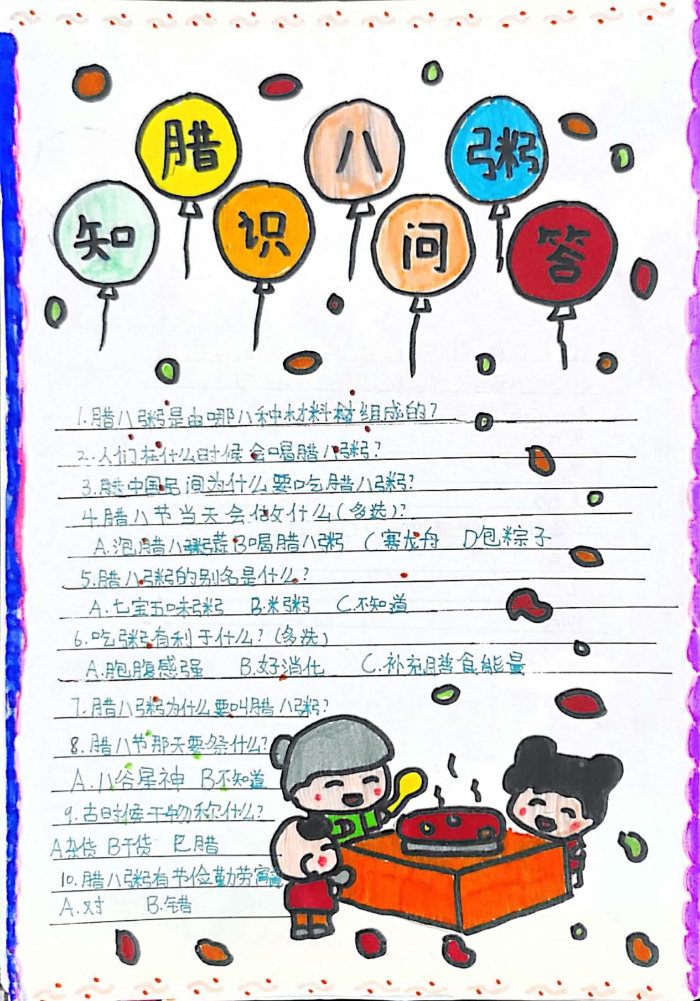 腊八粥
知识问答
1.腊八粥是由哪八种材料材组成的?
2.人们在什么时候会喝腊八粥?
3.腊中国民间为什么要吃腊八粥?
4.腊八节当天会做什么(多选)?
A.泡腊八粥蒜 B喝腊八粥 C赛龙舟 D包粽子
5.腊八粥的别名是什么?
A.七宝五味粥 B.米粥 C.不知道
6.吃粥有利于什么?(多选)
A.胞腹感强 B.好消化 C.补充膳食能量
7.腊八粥为什么要叫腊八粥?
8.腊八节那天要祭什么?
A.八谷星神 B不知道
9.古时候干物称什么?
A杂货 B干货 C腊
10.腊八粥有节俭勤劳寓
A.对 B.错